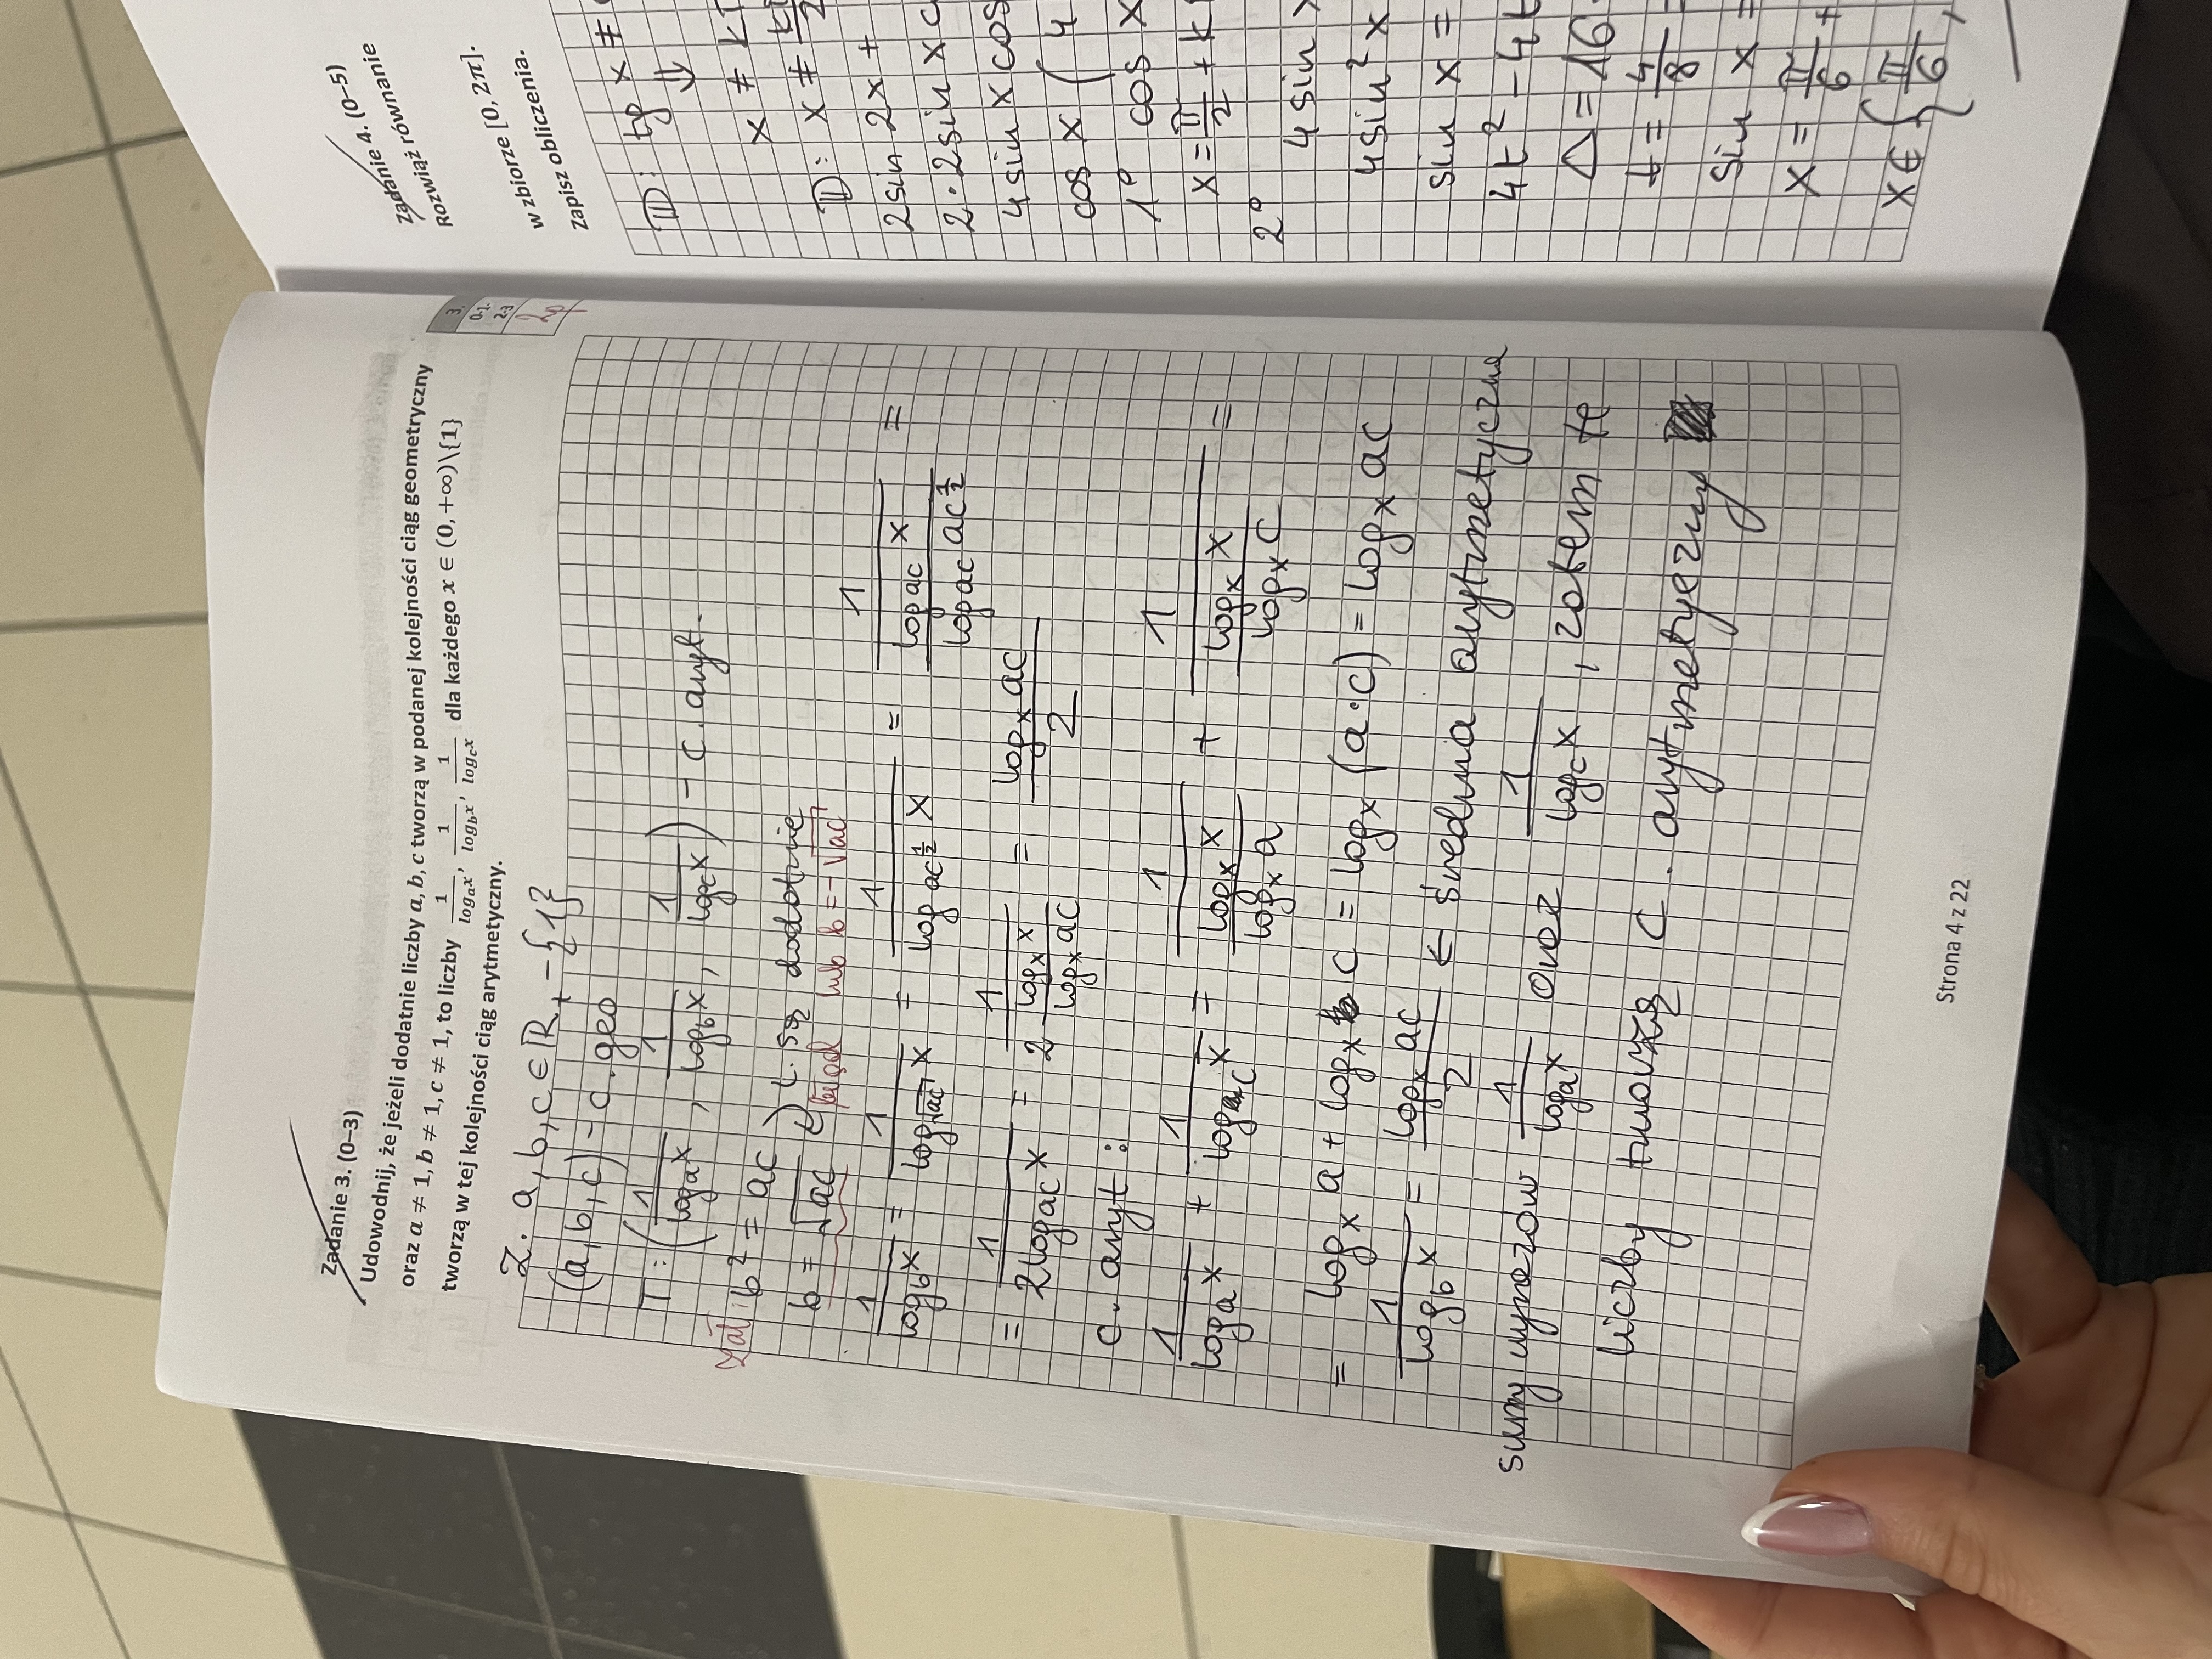 Zadanie 3. (0–3)
Udowodnij, że jeżeli dodatnie liczby a, b, c tworzą w podanej kolejności ciąg geometryczny
oraz a ≠ 1, b ≠ 1, c ≠ 1, to liczby 1/logₐx, 1/log_b x, 1/log_c x dla każdego x ∈ (0, +∞)\{1}
tworzą w tej kolejności ciąg arytmetyczny.
3.
0–1–
2–3
2p
Z. a, b, c ∈ R₊ – {1}
(a, b, c) – c. geo
T: (1/logₐx, 1/log_b x, 1/log_c x) – c. aryt.
zał: b² = ac
b = √ac L. są dodatnie
błąd lub b = -√ac
1/log_b x = 1/log_√ac x = 1/log ac^½ x = 1/(log ac x / log ac ac^½) =
= 1/2log ac x = 1/(2 log_x x / log_x ac) = log_x ac / 2
c. aryt:
1/logₐx + 1/log_c x = 1/(log_x x / log_x a) + 1/(log_x x / log_x c) =
= log_x a + log_x c = log_x (a·c) = log_x ac
1/log_b x = log_x ac / 2 ← średnia arytmetyczna
sumy wyrazów 1/logₐx oraz 1/log_c x, zatem te
liczby tworzą c. arytmetyczny
Strona 4 z 22
Zadanie 4. (0–5)
Rozwiąż równanie
w zbiorze [0, 2π].
Zapisz obliczenia.
D: tg x ≠
⇓
x ≠ k
D: x ≠ k
2sin 2x +
2·2sin x c
4 sin x cos
cos x (4
1° cos x
x = π/2 + k
2°
4 sin x
4 sin² x
sin x =
4t² - 4t
Δ = 16
t = 4/8 =
sin x =
x = π/6 +
x ∈ {π/6,